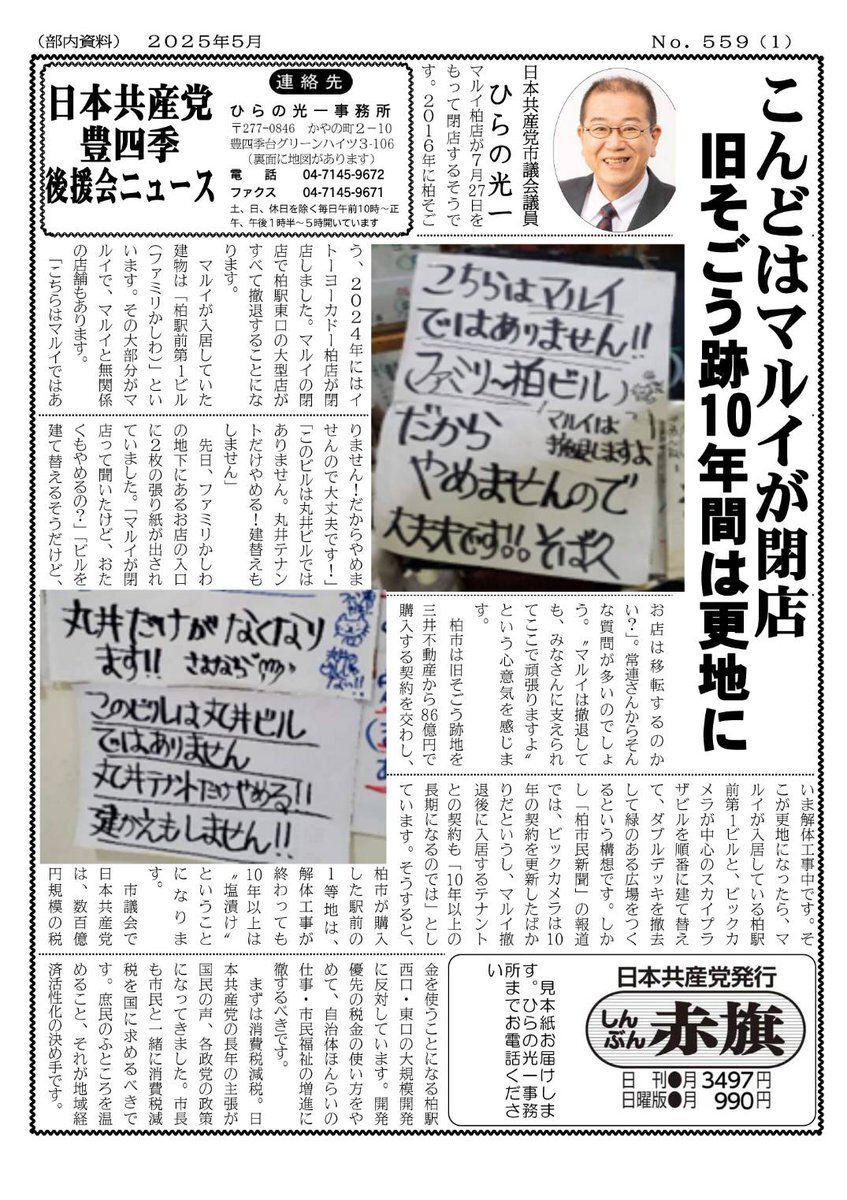 （部内資料）　２０２５年５月
Ｎｏ．５５９（１）
日本共産党
豊四季
後援会ニュース
連絡先
ひらの光一事務所
〒277-0846　かやの町２－10
豊四季台グリーンハイツ3-106
（裏面に地図があります）
電　話　04-7145-9672
ファクス　04-7145-9671
土、日、休日を除く毎日午前10時～正
午、午後１時半～５時開いています
こんどはマルイが閉店
旧そごう跡10年間は更地に
日本共産党市議会議員
ひらの光一
マルイ柏店が７月27日を
もって閉店するそうで
す。２０１６年に柏そご
う、２０２４年にはイ
トーヨーカドー柏店が閉
店しました。マルイの閉
店で柏駅東口の大型店が
すべて撤退することにな
ります。
マルイが入居していた
建物は「柏駅前第１ビル
（ファミリかしわ）」とい
います。その大部分がマ
ルイで、マルイと無関係
の店舗もあります。
「こちらはマルイではあ
りません！だからやめま
せんので大丈夫です！」
「このビルは丸井ビルでは
ありません。丸井テナン
トだけやめる！建替えも
しません」
先日、ファミリかしわ
の地下にあるお店の入口
に２枚の張り紙が出され
ていました。「マルイが閉
店って聞いたけど、おた
くもやめるの？」「ビルを
建て替えるそうだけど、
お店は移転するのか
い？」。常連さんからそん
な質問が多いのでしょ
う。〝マルイは撤退して
も、みなさんに支えられ
てここで頑張りますよ〟
という心意気を感じま
す。
柏市は旧そごう跡地を
三井不動産から86億円で
購入する契約を交わし、
いま解体工事中です。そ
こが更地になったら、マ
ルイが入居している柏駅
前第１ビルと、ビックカ
メラが中心のスカイプラ
ザビルを順番に建て替え
て、ダブルデッキを撤去
して緑のある広場をつく
るという構想です。しか
し「柏市民新聞」の報道
では、ビックカメラは10
年の契約を更新したばか
りだというし、マルイ撤
退後に入居するテナント
との契約も「10年以上の
長期になるのでは」とし
ています。そうすると、
柏市が購入
した駅前の
１等地は、
解体工事が
終わっても
10年以上は
〝塩漬け〟
ということ
になりま
す。
市議会で
日本共産党
は、数百億
円規模の税
金を使うことになる柏駅
西口・東口の大規模開発
に反対しています。開発
優先の税金の使い方をや
めて、自治体ほんらいの
仕事・市民福祉の増進に
徹するべきです。
まずは消費税減税。日
本共産党の長年の主張が
国民の声、各政党の政策
になってきました。市長
も市民と一緒に消費税減
税を国に求めるべきで
す。庶民のふところを温
めること、それが地域経
済活性化の決め手です。
こちらはマルイ
ではありません!!
（ファミリ～柏ビル）
マルイは
撤退しますよ
だから
やめませんので
大丈夫です!! そば久
丸井だけがなくなり
ます!! さよなら
このビルは丸井ビル
ではありません
丸井テナントだけやめる!!
建かえもしません!!
日本共産党発行
しんぶん
赤旗
日　刊●月3497円
日曜版●月　990円
見本紙お届けしま
す。ひらの光一事務
所までお電話くださ
い